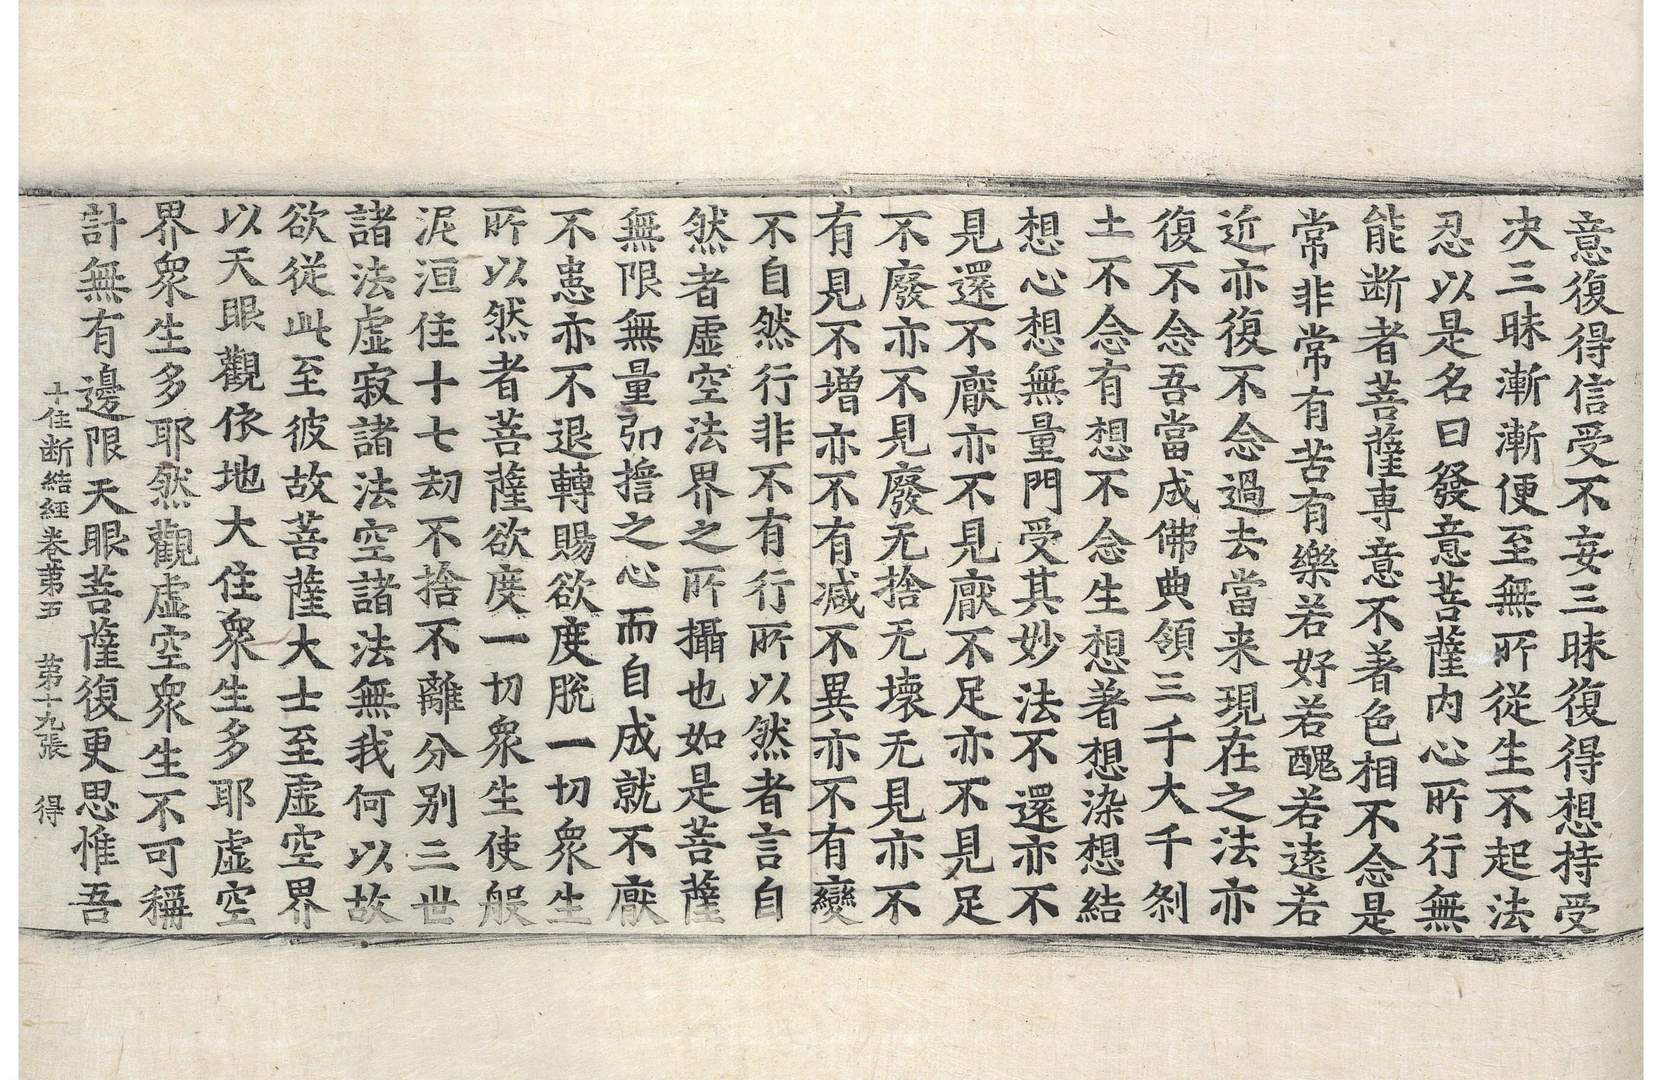 意復得信受不妄三昧復得想持受
决三昧漸漸便至無所從生不起法
忍以是名曰發意菩薩内心所行無
能断者菩薩專意不著色相不念是
常非常有苦有樂若好若醜若遠若
近亦復不念過去當来現在之法亦
復不念吾當成佛典領三千大千剎
土不念有想不念生想著想染想結
想心想無量門受其妙法不還亦不
見還不厭亦不見厭不足亦不見足
不廢亦不見廢无捨无壞无見亦不
有見不增亦不有减不異亦不有變
不自然行非不有行所以然者言自
然者虛空法界之所攝也如是菩薩
無限無量弘誓之心而自成就不厭
不患亦不退轉賜欲度脫一切衆生
所以然者菩薩欲度一切衆生使般
泥洹住十七劫不捨不離分别三世
諸法虛寂諸法空諸法無我何以故
欲從此至彼故菩薩大士至虛空界
以天眼觀依地大住衆生多耶虛空
界衆生多耶然觀虛空衆生不可稱
計無有邊限天眼菩薩復更思惟吾
十住断結經卷第五 第十九張 得